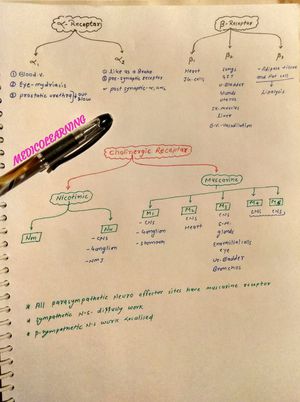 α-Receptor
β-Receptor
α1
α2
β1
β2
β3
① Blood.v.
② Eye-mydriasis
③ prostatic urethra
① Like as a Brake
② pre-synaptic receptor
or post synaptic-
Heart
J.G. cells
Lungs
GIT
u-Bladder
uterus
sk-muscles
Liver
B.V.-vasodilation
- Adipose tissue
and Fat cell
Lipolysis
MEDICOLEARNING
Cholinergic Receptor
Nicotinic
Muscarinic
Nm
Nn
- CNS
- Ganglion
- NMJ
M1
- CNS
- Ganglion
- stomach
M2
CNS
Heart
M3
CNS
S.M.
glands
Endothelial cells
eye
ur. Bladder
Bronchios
M4
CNS
M5
CNS
* All parasympathetic Neuro effector sites have muscurine receptor
* sympathetic N.S. diffusly work
* p-sympathetic N.S work localised